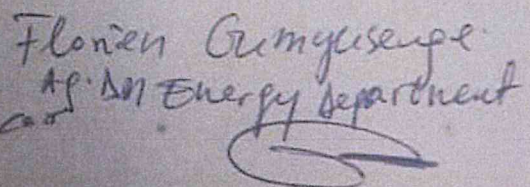 Florien Gumyusenge
Ag. DM Energy Department